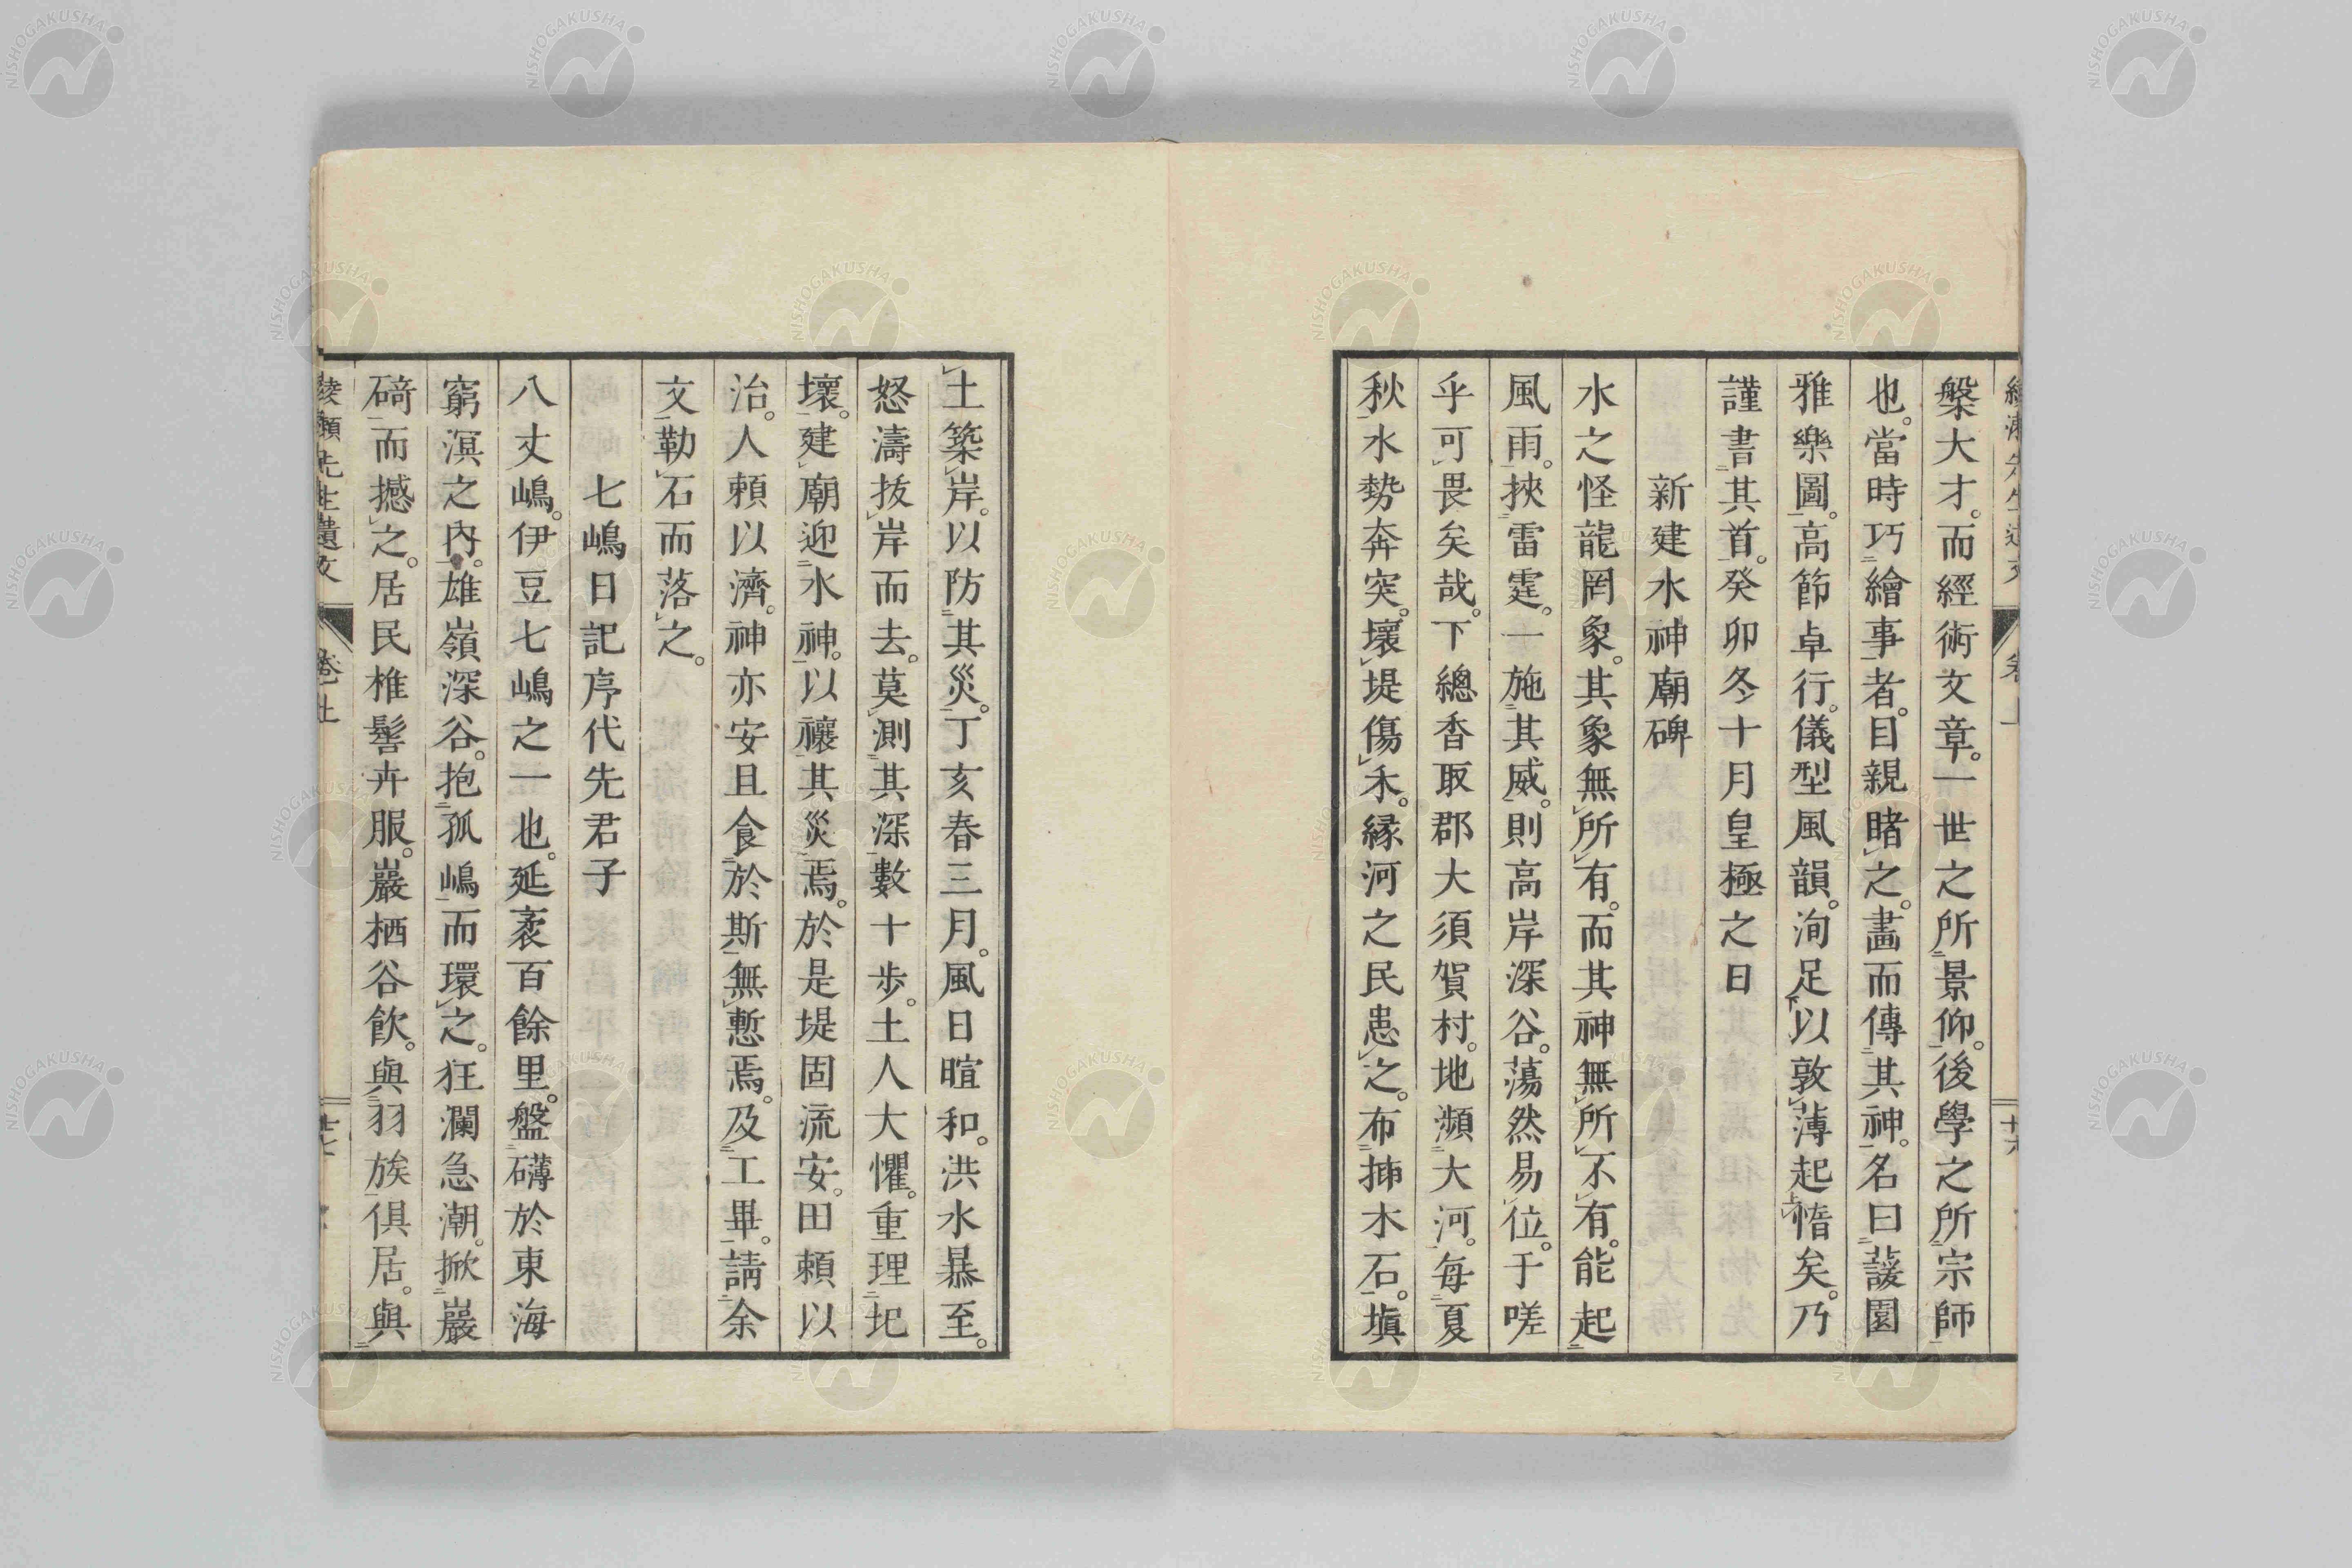 槃大才。而經術文章。一世之所景仰。後學之所宗師
也。當時巧繪事者。目親睹之。畵而傳其神。名曰蘐園
雅樂圖。高節卓行。儀型風韻。洵足以敦薄起惰矣。乃
謹書其首。癸卯冬十月皇極之日
新建水神廟碑
水之怪龍罔象。其象無所有。而其神無所不有。能起
風雨。挾雷霆。一施其威。則高岸深谷。蕩然易位。于嗟
乎可畏矣哉。下總香取郡大須賀村。地瀕大河。每夏
秋水勢奔突。壞堤傷禾。緣河之民患之。布揷木石。塡
土築岸。以防其災。丁亥春三月。風日暄和。洪水暴至。
怒濤拔岸而去。莫測其深數十步。土人大懼。重理圯
壞。建廟迎水神。以禳其災焉。於是堤固流安。田賴以
治。人賴以濟。神亦安且食於斯無慙焉。及工畢。請余
文勒石而落之。
七嶋日記序代先君子
八丈嶋。伊豆七嶋之一也。延袤百餘里。盤礴於東海
窮溟之內。雄嶺深谷。抱孤嶋而環之。狂瀾急潮。掀巖
碕而撼之。居民椎髻卉服。巖栖谷飮。與羽族俱居。與
先生遺文 卷上
NISHOGAKUSHA